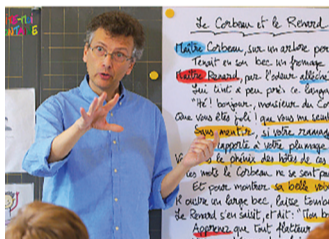 Le Corbeau et le Renard
Maître Corbeau, sur un arbre per
Tenait en son bec un fromage
Maître Renard, par l'odeur alléché
Lui tint à peu près ce langag
"Hé ! bonjour, monsieur du Co
Que vous êtes joli ! que vous me semb
Sans mentir, si votre ramag
rapporte à votre plumage
le phénix des hôtes de ces
ces mots le Corbeau ne se sent pa
Et pour montrer sa belle voi
ouvre un large bec, laisse tombe
Le Renard s'en saisit, et dit : "Mon b
Apprenez que tout flatteur